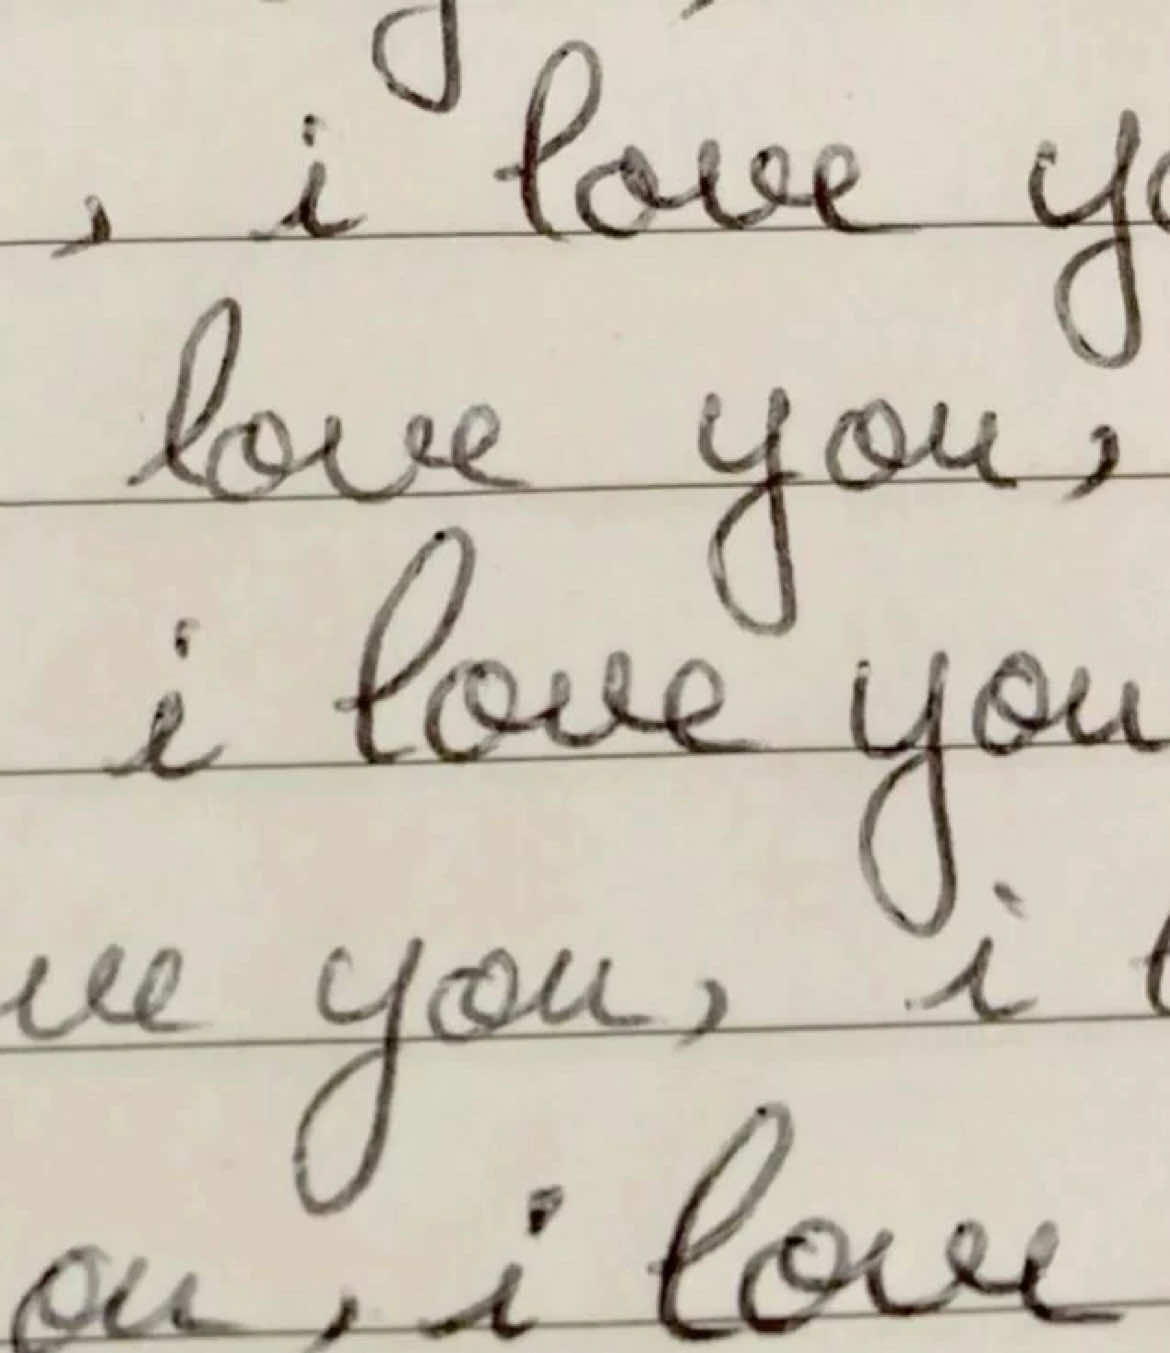 , i love yo
love you,
i love you
ve you, i l
ou, i love